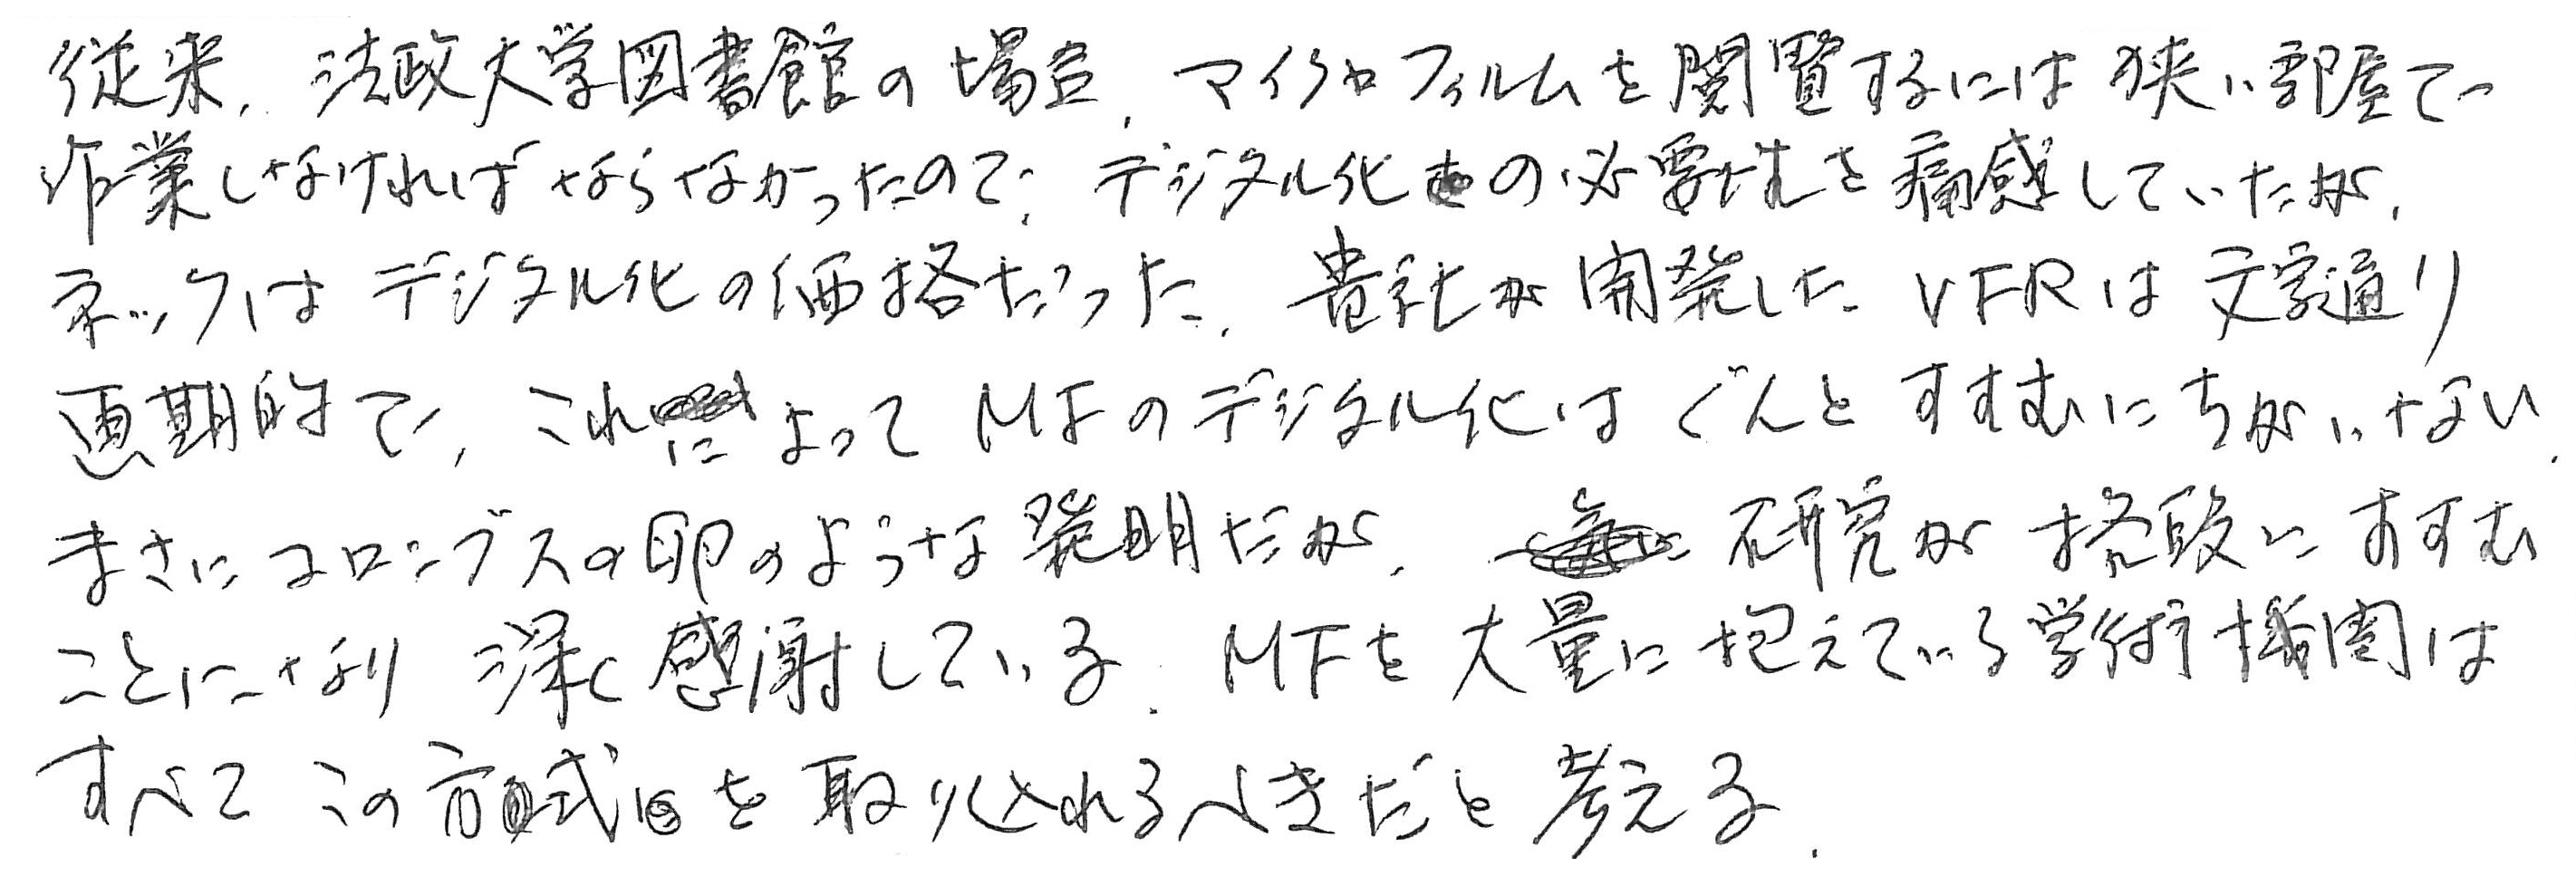 従来、法政大学図書館の場合、マイクロフィルムを閲覧するには狭い部屋で
作業しなければならなかったので、デジタル化の必要性を痛感していたが、
ネックはデジタル化の価格だった。貴社が開発したVFRは文字通り
画期的で、これによってMFのデジタル化はぐんとすすむにちがいない。
まさにコロンブスの卵のような発明だが、研究が格段にすすむ
ことになり深く感謝している。MFを大量に抱えている学術機関は
すべてこの方式を取り入れるべきだと考える。